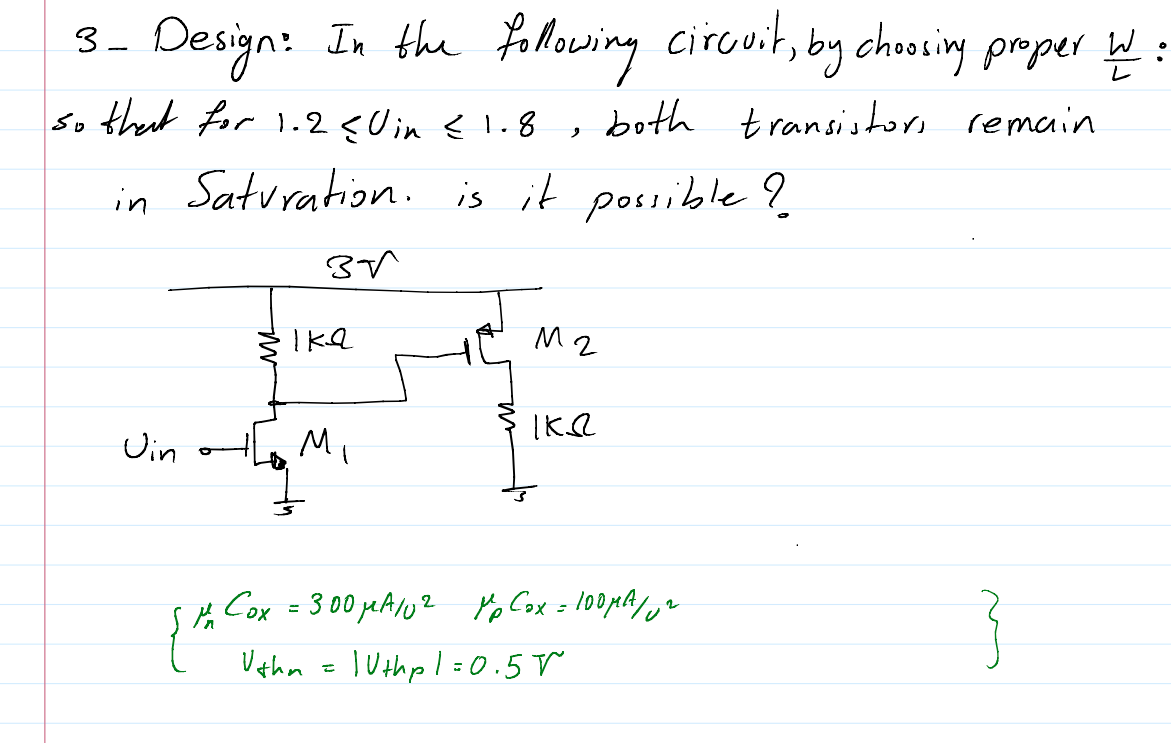 3- Design: In the following circuit, by choosing proper W/L :
so that for 1.2 ≤ Uin ≤ 1.8 , both transistors remain
in Saturation. is it possible?
3V
1KΩ
M2
1KΩ
Uin
M1
μn Cox = 300 μA/υ² μp Cox = 100 μA/υ²
Uthn = |Uthp| = 0.5 V